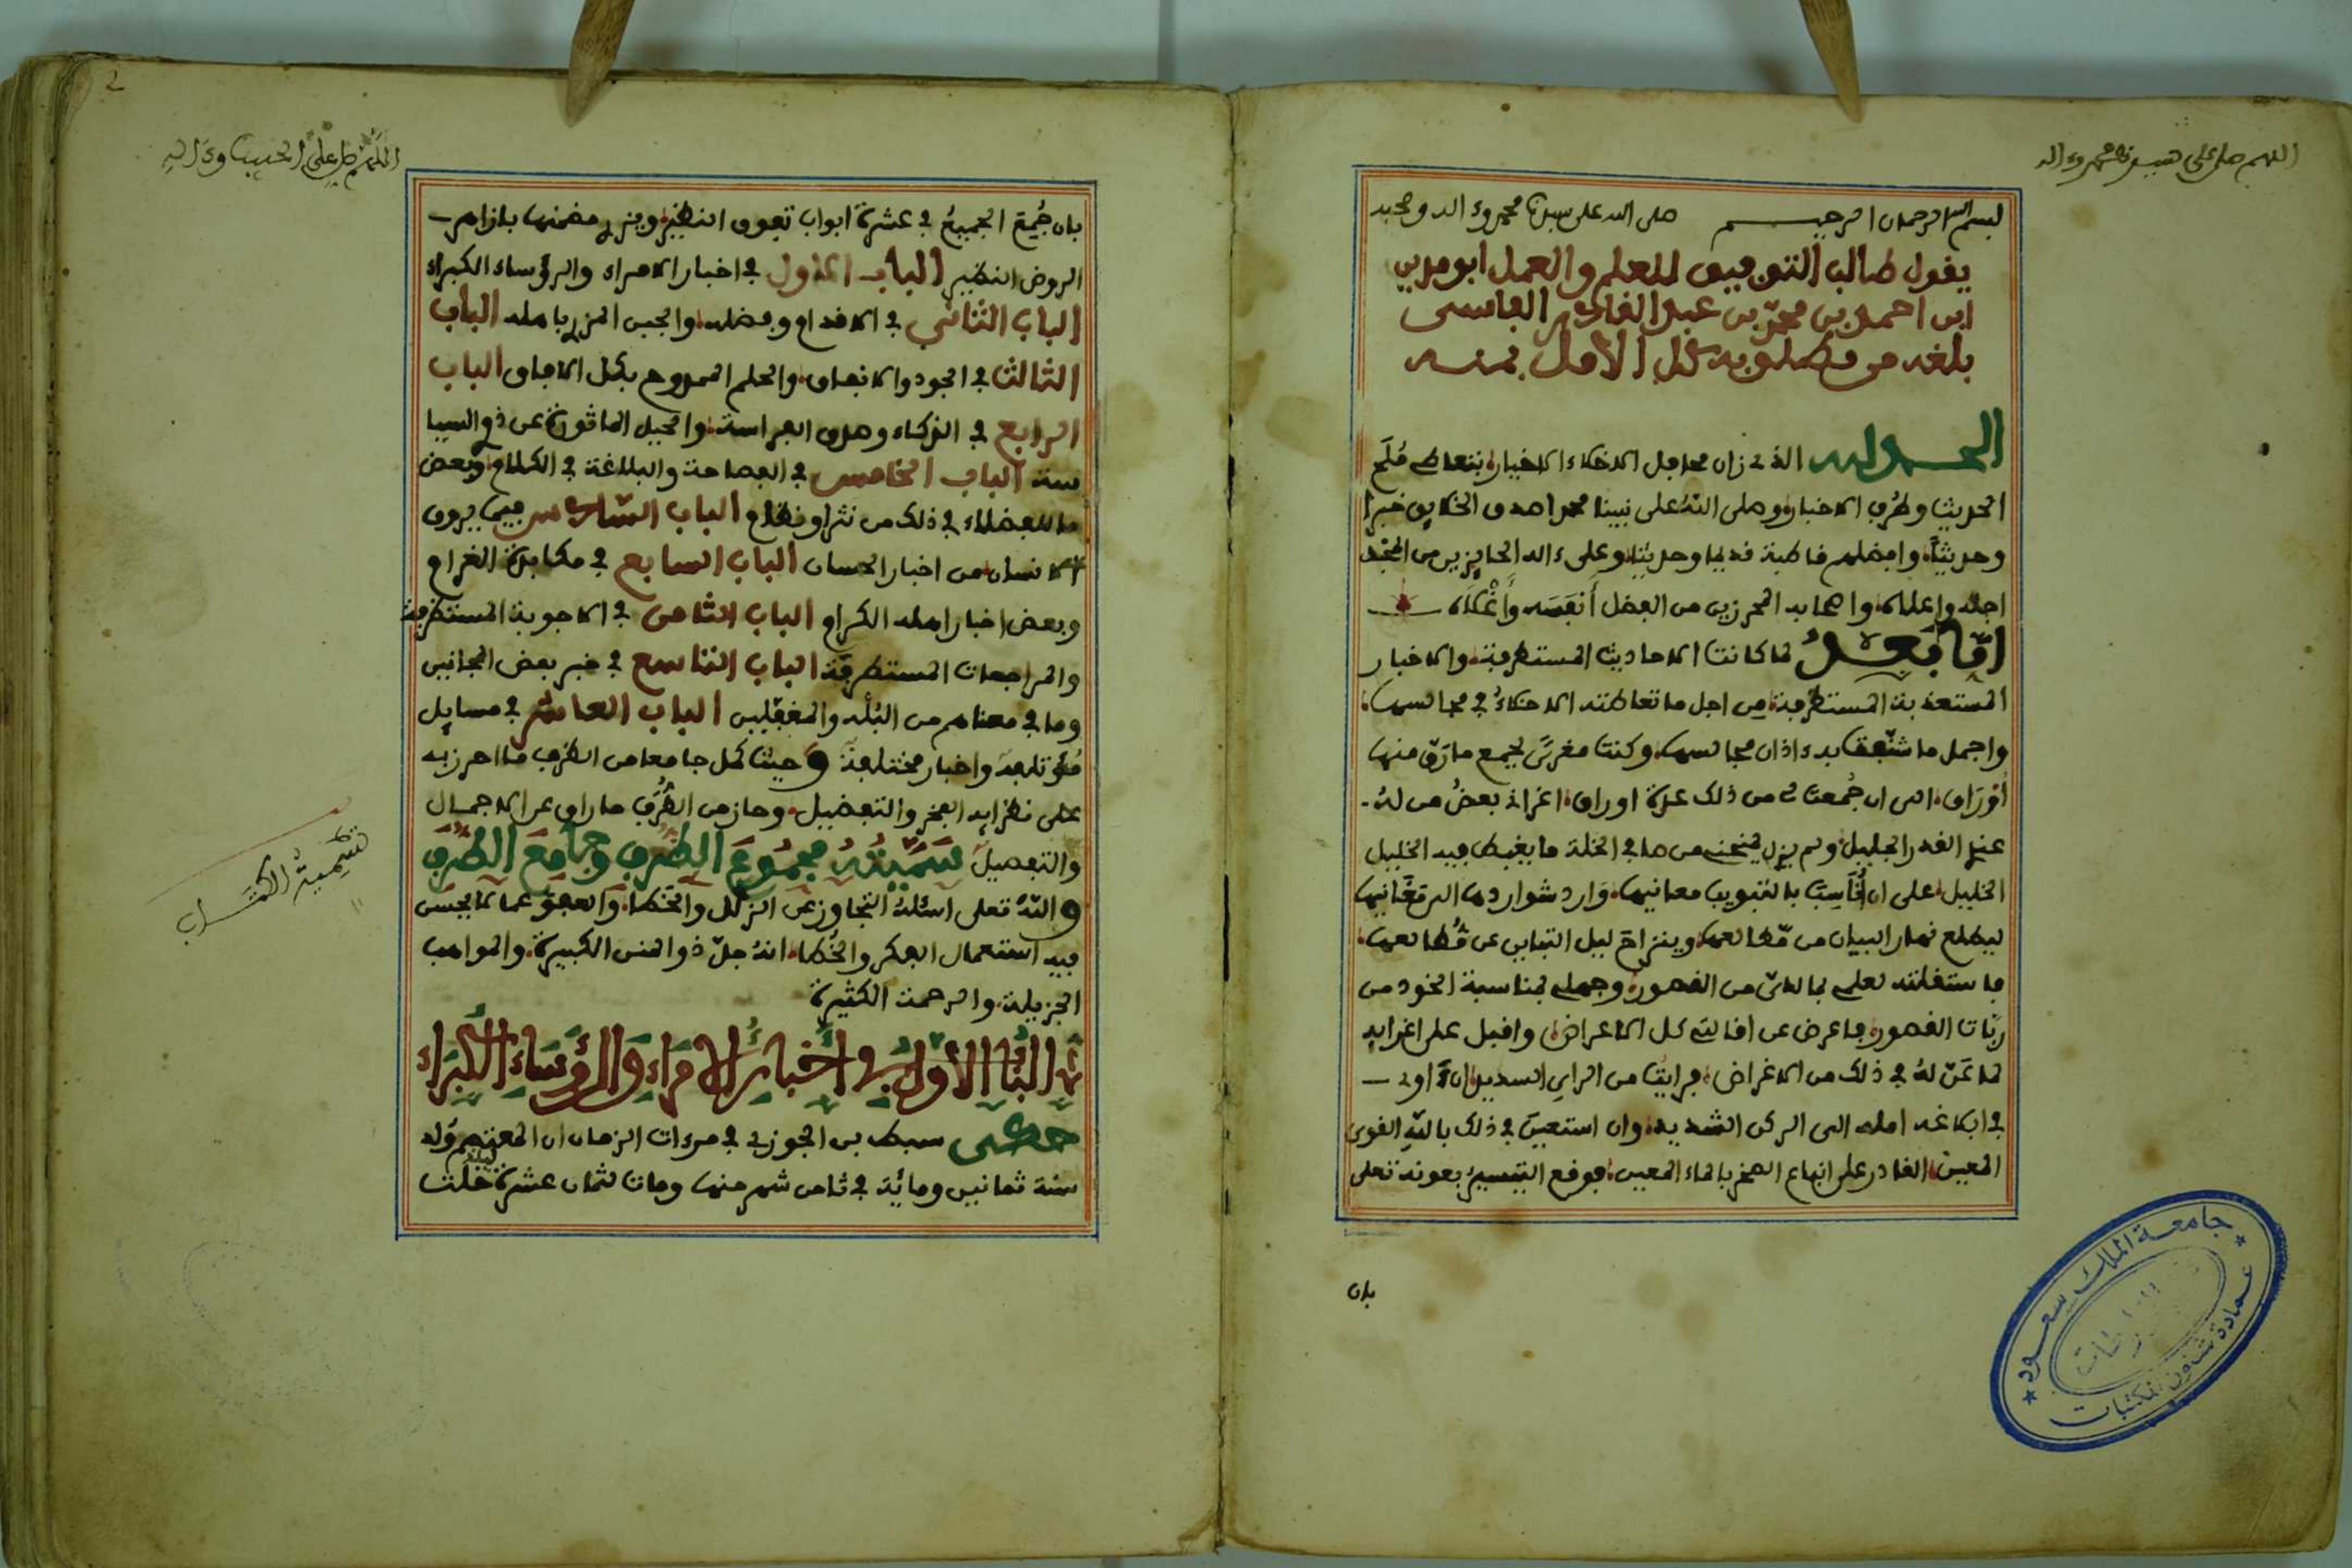 اللهم صل على حبيبنا محمد وءاله
بسم الله الرحمان الرحيم صلى الله على سيدنا محمد وءاله وصحبه
يقول طالب التوفيق للعلم والعمل ابو مدين
ابن احمد بن محمد بن عبد القادر الفاسي
بلغه من مطلوبه كل الأمل بمنه
الحمد لله الذى زان محافل الاذكياء الاخيار بتعاطى مُلَح
الحديث وطُرَف الاخبار وصلى اللهُ على نبينا محمد اصدق الخلايق خبرا
وحديثاً وافضلهم فاطبة قديما وحديثا وعلى ءاله الحايزين من المجد
اجله واعلاه واصحابه المحرزين من الفضل أَنفَسَه وأَغْلاَه
امّا بَعْدُ لما كانت الاحاديث المستطرفة والاخبار
المستعذبة المستظرفة مِن اجل ما تعاطته الاذكياءُ في مجالسها
واجمل ما شنّفت به ءاذان مجالسها وكنت مغرىً بجمع ما رَقّ منها
أوْرَاق الى ان جُمعت لى من ذلك عدة اوراق اغرانى بعضُ من لهُ
عندى القدر الجليل ولم يزل يمنحنى من صافى الخلة ما يغبط فيه الخليل
الخليل على ان أُنَاسِبَ بالتبويب معانيها وَارد شواردها الى مَغَانيها
ليطلع نهار البيان من مَطالعها وينزاح ليل التباين عن مُطالعها
فاستقلته لعلمى بما لدىّ من القصور وجهلى بمناسبة الخود من
ربّات القصور فاعرض عن اقالتى كل الاعراض واقبل على اغرايه
لما عَنّ لهُ في ذلك من الاغراض فرايت من الراي السديد ان ءاوى
في ابلاغه امله الى الركن الشديد وان استعين في ذلك باللهِ القوى
المعين القادر على انباع الصخر بالماء المعين فوقع التيسيرُ بعونه تعلى
بان
جامعة الملك سعود
عمادة شئون المكتبات
اللهم صل على الحبيب وءاله
بان جُمعَ الجميعُ في عشرة ابواب تفوق النظير ويزرى مضمنها بازاهر
الروض النضير الباب الاول في اخبار الامراء والرؤساء الكبراء
الباب الثانى في الاقدام وفضله والجبن المزرى باهله الباب
الثالث في الجود والانفاق والحلم الممدوح بكل الافاق الباب
الرابع في الذكاء وصدق الفراسة والحيل الماثورة عن ذوى السيا
سة الباب الخامس في الفصاحة والبلاغة في الكلام وبعض
ما للفضلاء في ذلك من نثر او نظام الباب السادس فيما يروق
الانسان من اخبار الحسان الباب السابع في مكابدة الغرام
وبعض اخبار اهله الكرام الباب الثامن في الاجوبة المستظرفة
والمراجعات المستطرفة الباب التاسع في خبر بعض المجانين
وما في معناهم من البُلْه والمغفّلين الباب العاشر في مسايل
مُؤتلفة واخبار مختلفة وحيث كمل جامعا من الطُرَف ما احرز به
على نظرايه الفخر والتفضيل وحاز من الظُرف ما راق على الاجمال
والتفصيل سَمَّيْتُهُ مجمُوعَ الظُرَفِ وجَامعَ الطُرَفِ
واللّهُ تعلى اسئلهُ التجاوز عَن الزلل والخَطا والعفو عما لا يحسن
فيه استعمال الفكر والخُطا انهُ جلّ ذو المنن الكبيرة والمواهب
الجزيلة والرحمة الكثيرة
تسمية الكتاب
البَابُ الأوّلُ في أخبَارِ الأمَراءِ وَالرؤسَاءِ الكُبَرَاء
حكى سبط بن الجوزى في مرءات الزمان ان المعتصم وُلد
سنة ثمانين ومائة في ثامن شهر منها ومات لثمان عشرة ليلة خلت